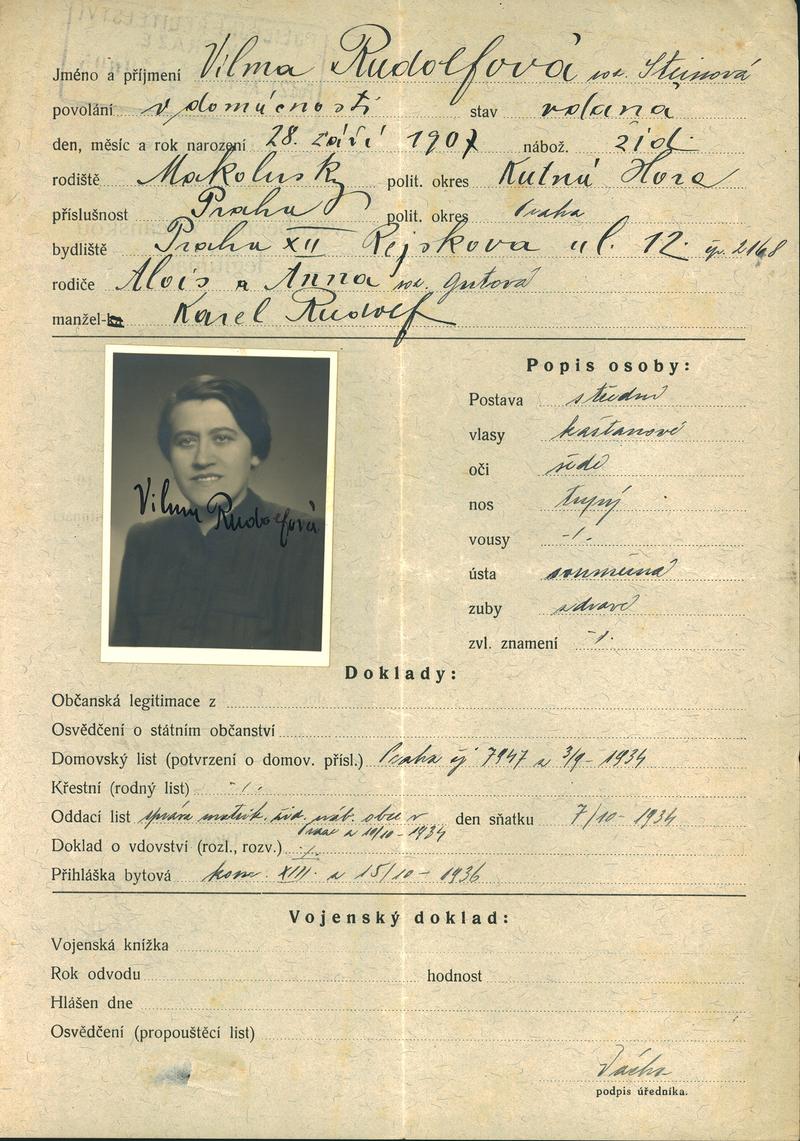 Jméno a příjmení Vilma Rudolfová roz. Steinová
povolání v domácnosti stav vdaná
den, měsíc a rok narození 28. září 1907 nábož. žid.
rodiště Makolusky polit. okres Kutná Hora
příslušnost Praha polit. okres Praha
bydliště Praha XII Rejskova ul. 12. čp. 2168
rodiče Alois a Anna roz. Gutová
manžel-ka Karel Rudolf
Popis osoby:
Postava střední
vlasy kaštanové
oči šedé
nos tupý
vousy -/.
ústa souměrná
zuby zdravé
zvl. znamení -/.
Vilma Rudolfová
Doklady:
Občanská legitimace z
Osvědčení o státním občanství
Domovský list (potvrzení o domov. přísl.) Praha čj 7947 z 3/9 - 1934
Křestní (rodný list) -/.
Oddací list správa matrik. žid. náb. obce v den sňatku 7/10 - 1934
Praze z 10/10 - 1934
Doklad o vdovství (rozl., rozv.) -/.
Přihláška bytová kom. XIII. z 15/10 - 1936
Vojenský doklad:
Vojenská knížka
Rok odvodu hodnost
Hlášen dne
Osvědčení (propouštěcí list)
podpis úředníka.